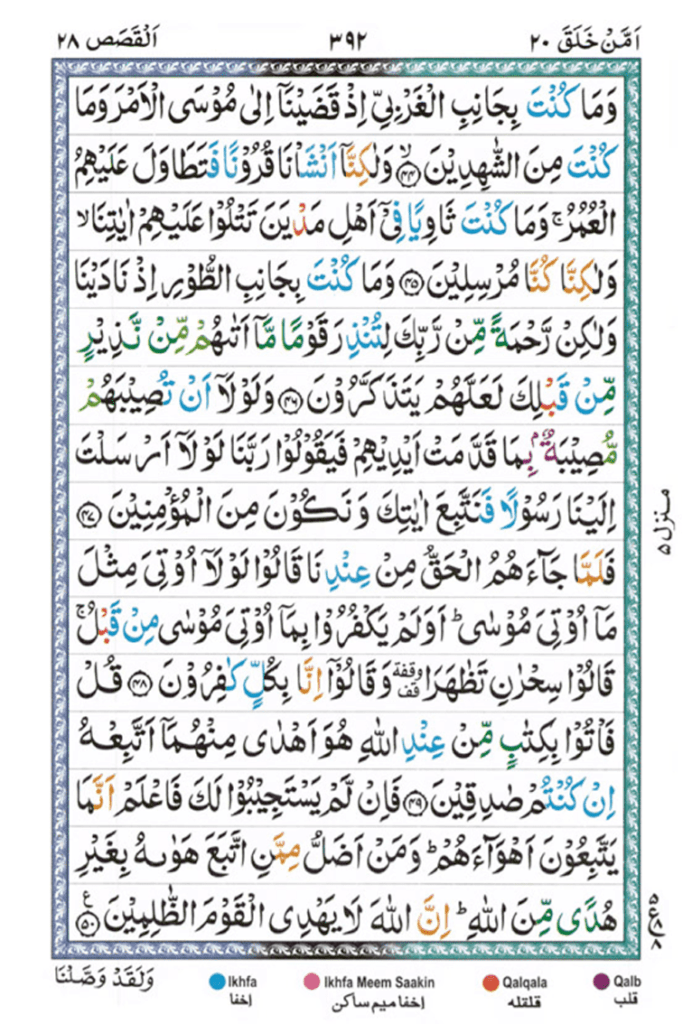 اَمَّنْ خَلَقَ ۲۰ ۳۹۲ اَلْقَصَص ۲۸
وَمَا كُنْتَ بِجَانِبِ الْغَرْبِيِّ اِذْ قَضَيْنَاۤ اِلٰى مُوْسَى الْاَمْرَ وَمَا
كُنْتَ مِنَ الشّٰهِدِيْنَ ﴿۴۴﴾ۙ وَلٰكِنَّاۤ اَنْشَاْنَا قُرُوْنًا فَتَطَاوَلَ عَلَيْهِمُ
الْعُمُرُ ۚ وَمَا كُنْتَ ثَاوِيًا فِيْۤ اَهْلِ مَدْيَنَ تَتْلُوْا عَلَيْهِمْ اٰيٰتِنَا ۙ
وَلٰكِنَّا كُنَّا مُرْسِلِيْنَ ﴿۴۵﴾ وَمَا كُنْتَ بِجَانِبِ الطُّوْرِ اِذْ نَادَيْنَا
وَلٰكِنْ رَّحْمَةً مِّنْ رَّبِّكَ لِتُنْذِرَ قَوْمًا مَّاۤ اَتٰىهُمْ مِّنْ نَّذِيْرٍ
مِّنْ قَبْلِكَ لَعَلَّهُمْ يَتَذَكَّرُوْنَ ﴿۴۶﴾ وَلَوْلَاۤ اَنْ تُصِيْبَهُمْ
مُّصِيْبَةٌۢ بِمَا قَدَّمَتْ اَيْدِيْهِمْ فَيَقُوْلُوْا رَبَّنَا لَوْلَاۤ اَرْسَلْتَ
اِلَيْنَا رَسُوْلًا فَنَتَّبِعَ اٰيٰتِكَ وَنَكُوْنَ مِنَ الْمُؤْمِنِيْنَ ﴿۴۷﴾
فَلَمَّا جَآءَهُمُ الْحَقُّ مِنْ عِنْدِنَا قَالُوْا لَوْلَاۤ اُوْتِيَ مِثْلَ
مَاۤ اُوْتِيَ مُوْسٰى ؕ اَوَلَمْ يَكْفُرُوْا بِمَاۤ اُوْتِيَ مُوْسٰى مِنْ قَبْلُ ۚ
قَالُوْا سِحْرٰنِ تَظٰهَرَا وقفة وَقَالُوْۤا اِنَّا بِكُلٍّ كٰفِرُوْنَ ﴿۴۸﴾ قُلْ
فَاْتُوْا بِكِتٰبٍ مِّنْ عِنْدِ اللّٰهِ هُوَ اَهْدٰى مِنْهُمَاۤ اَتَّبِعْهُ
اِنْ كُنْتُمْ صٰدِقِيْنَ ﴿۴۹﴾ فَاِنْ لَّمْ يَسْتَجِيْبُوْا لَكَ فَاعْلَمْ اَنَّمَا
يَتَّبِعُوْنَ اَهْوَآءَهُمْ ؕ وَمَنْ اَضَلُّ مِمَّنِ اتَّبَعَ هَوٰىهُ بِغَيْرِ
هُدًى مِّنَ اللّٰهِ ؕ اِنَّ اللّٰهَ لَا يَهْدِى الْقَوْمَ الظّٰلِمِيْنَ ﴿۵۰﴾ ع
منزل ۵
وَلَقَدْ وَصَّلْنَا
Ikhfa Ikhfa Meem Saakin Qalqala Qalb
اِخفا اِخفا میم ساکن قلقله قلب